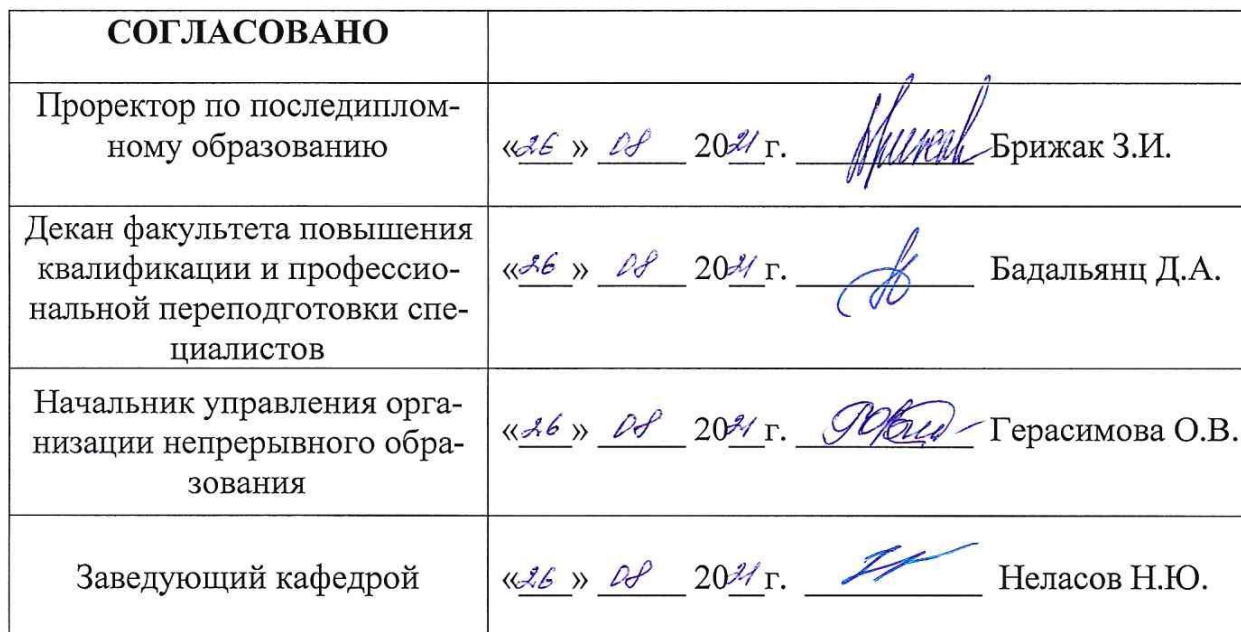 СОГЛАСОВАНО
Проректор по последиплом-
ному образованию
«26» 08 2021 г. Брижак З.И.
Декан факультета повышения
квалификации и профессио-
нальной переподготовки спе-
циалистов
«26» 08 2021 г. Бадальянц Д.А.
Начальник управления орга-
низации непрерывного обра-
зования
«26» 08 2021 г. Герасимова О.В.
Заведующий кафедрой
«26» 08 2021 г. Неласов Н.Ю.